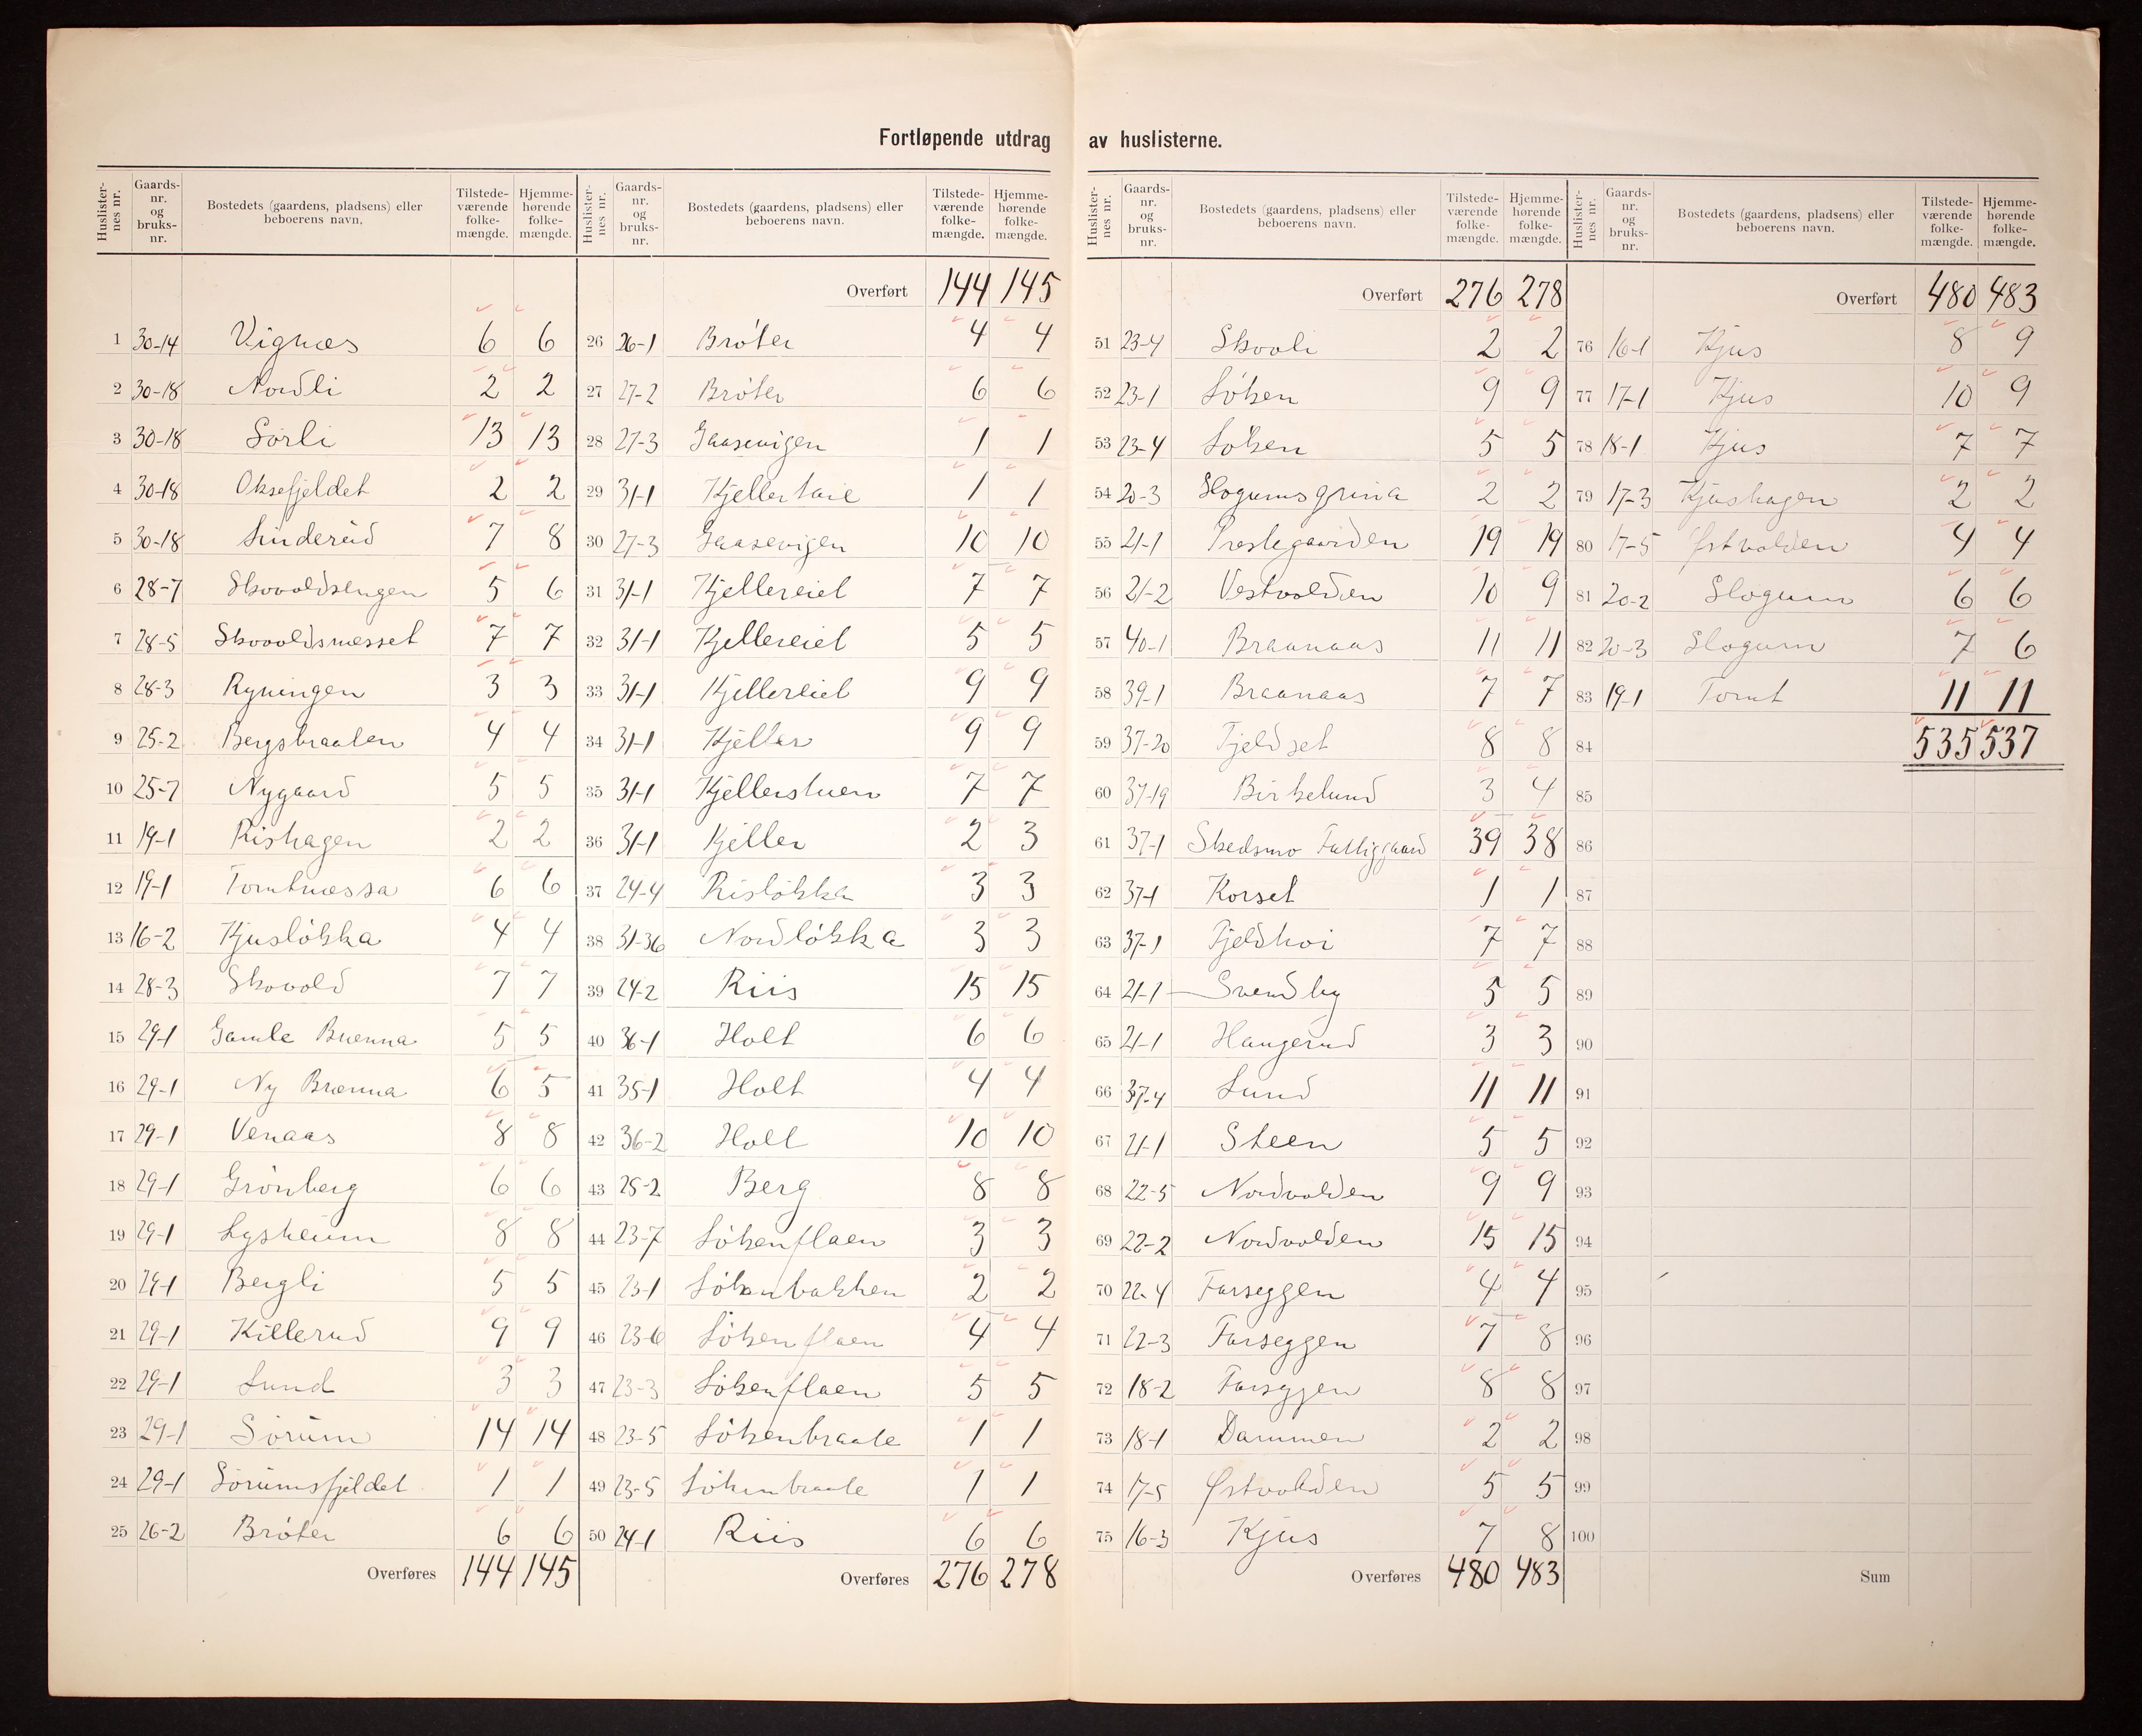 Fortløpende utdrag av huslisterne.
Huslister-nes nr. Gaards-nr. og bruks-nr. Bostedets (gaardens, pladsens) eller beboerens navn. Tilstede-værende folke-mængde. Hjemme-hørende folke-mængde.
1 30-14 Vignæs 6 6
2 30-18 Nordli 2 2
3 30-18 Sørli 13 13
4 30-18 Oksefjeldet 2 2
5 30-18 Linderud 7 8
6 28-7 Skovoldsengen 5 6
7 28-5 Skovoldsnæsset 7 7
8 28-3 Ryningen 3 3
9 25-2 Bergsbraaten 4 4
10 25-7 Nygaard 5 5
11 19-1 Rishagen 2 2
12 19-1 Tomtnæssa 6 6
13 16-2 Kjusløkka 4 4
14 28-3 Skovold 7 7
15 29-1 Gamle Brenna 5 5
16 29-1 Ny Brænna 6 5
17 29-1 Venaas 8 8
18 29-1 Grønberg 6 6
19 29-1 Lysheim 8 8
20 29-1 Bergli 5 5
21 29-1 Killerud 9 9
22 29-1 Lund 3 3
23 29-1 Sørum 14 14
24 29-1 Sørumsfjeldet 1 1
25 26-2 Brøter 6 6
Overføres 144 145
Huslister-nes nr. Gaards-nr. og bruks-nr. Bostedets (gaardens, pladsens) eller beboerens navn. Tilstede-værende folke-mængde. Hjemme-hørende folke-mængde.
Overført 144 145
26 26-1 Brøter 4 4
27 27-2 Brøter 6 6
28 27-3 Gaasevigen 1 1
29 31-1 Kjellertaie 1 1
30 27-3 Gaasevigen 10 10
31 31-1 Kjellereiet 7 7
32 31-1 Kjellereiet 5 5
33 31-1 Kjellereiet 9 9
34 31-1 Kjeller 9 9
35 31-1 Kjellerstuen 7 7
36 31-1 Kjeller 2 3
37 24-4 Risløkka 3 3
38 31-36 Nordløkka 3 3
39 24-2 Riis 15 15
40 36-1 Holt 6 6
41 35-1 Holt 4 4
42 36-2 Holt 10 10
43 25-2 Berg 8 8
44 23-7 Løkenflaen 3 3
45 23-1 Løkenbakken 2 2
46 23-6 Løkenflaen 4 4
47 23-3 Løkenflaen 5 5
48 23-5 Løkenbraate 1 1
49 23-5 Løkenbraate 1 1
50 24-1 Riis 6 6
Overføres 276 278
Huslister-nes nr. Gaards-nr. og bruks-nr. Bostedets (gaardens, pladsens) eller beboerens navn. Tilstede-værende folke-mængde. Hjemme-hørende folke-mængde.
Overført 276 278
51 23-4 Skooli 2 2
52 23-1 Løken 9 9
53 23-4 Løken 5 5
54 20-3 Slogumsgrina 2 2
55 21-1 Prestegaarden 19 19
56 21-2 Vestvolden 10 9
57 40-1 Braanaas 11 11
58 39-1 Braanaas 7 7
59 37-20 Fjeldset 8 8
60 37-19 Birkelund 3 4
61 37-1 Skedsmo Fattiggaard 39 38
62 37-1 Korset 1 1
63 37-1 Fjeldhoi 7 7
64 21-1 Svendby 5 5
65 21-1 Haugerud 3 3
66 37-4 Lund 11 11
67 21-1 Steen 5 5
68 22-5 Nordvolden 9 9
69 22-2 Nordvolden 15 15
70 22-4 Farseggen 4 4
71 22-3 Farseggen 7 8
72 18-2 Farseggen 8 8
73 18-1 Dammen 2 2
74 17-5 Østvolden 5 5
75 16-3 Kjus 7 8
Overføres 480 483
Huslister-nes nr. Gaards-nr. og bruks-nr. Bostedets (gaardens, pladsens) eller beboerens navn. Tilstede-værende folke-mængde. Hjemme-hørende folke-mængde.
Overført 480 483
76 16-1 Kjus 8 9
77 17-1 Kjus 10 9
78 18-1 Kjus 7 7
79 17-3 Kjushagen 2 2
80 17-5 Østvolden 4 4
81 20-2 Slogum 6 6
82 20-3 Slogum 7 6
83 19-1 Tomt 11 11
84 535 537
85
86
87
88
89
90
91
92
93
94
95
96
97
98
99
100
Sum